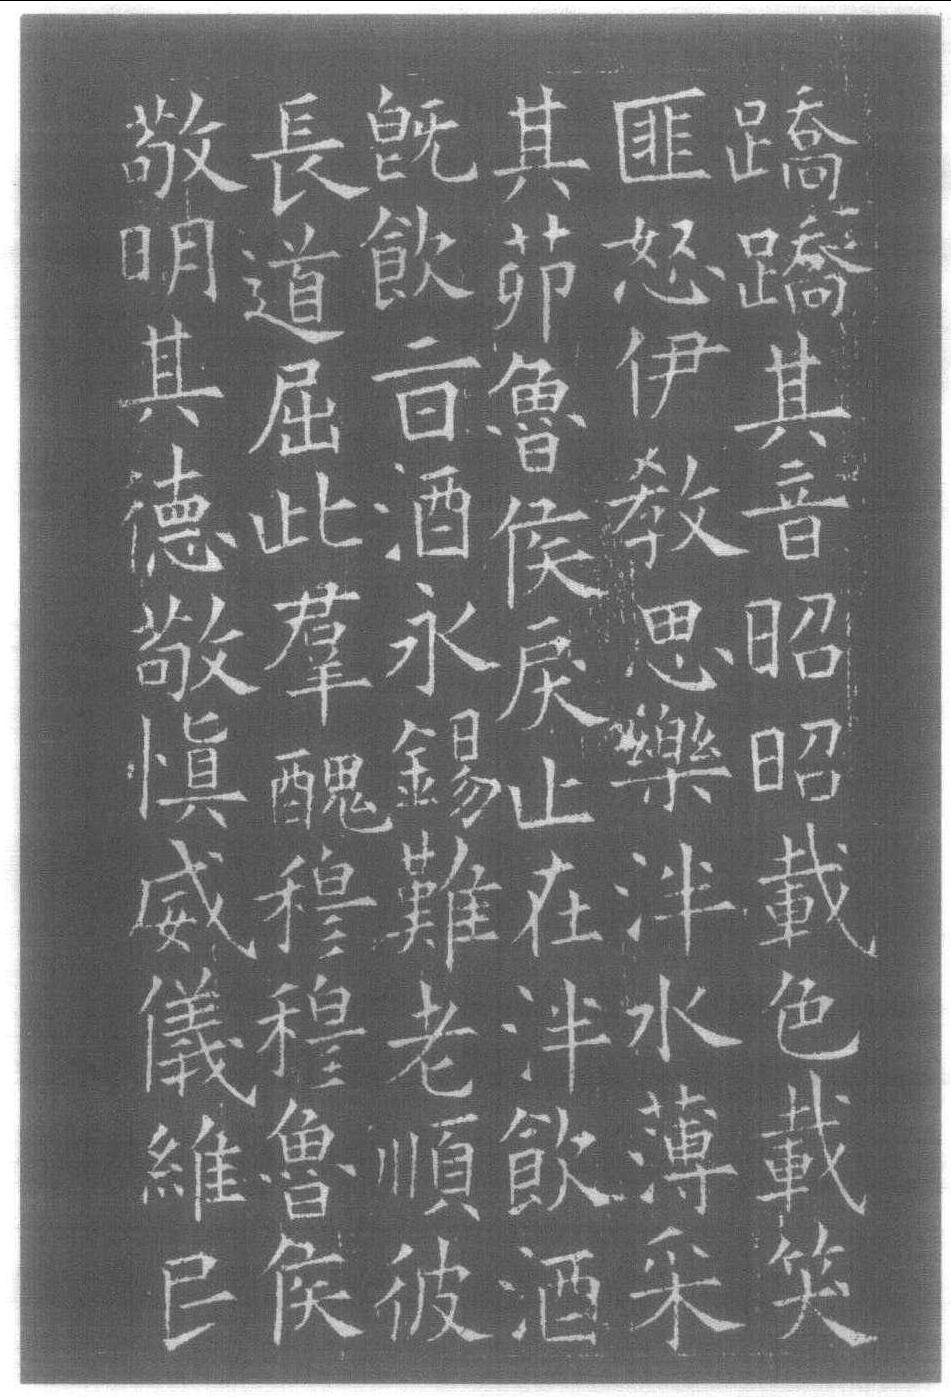 蹻蹻其音昭昭載色載笑
匪怒伊教思樂泮水薄采
其茆魯侯戾止在泮飲酒
既飲旨酒永錫難老順彼
長道屈此羣醜穆穆魯侯
敬明其德敬慎威儀維民